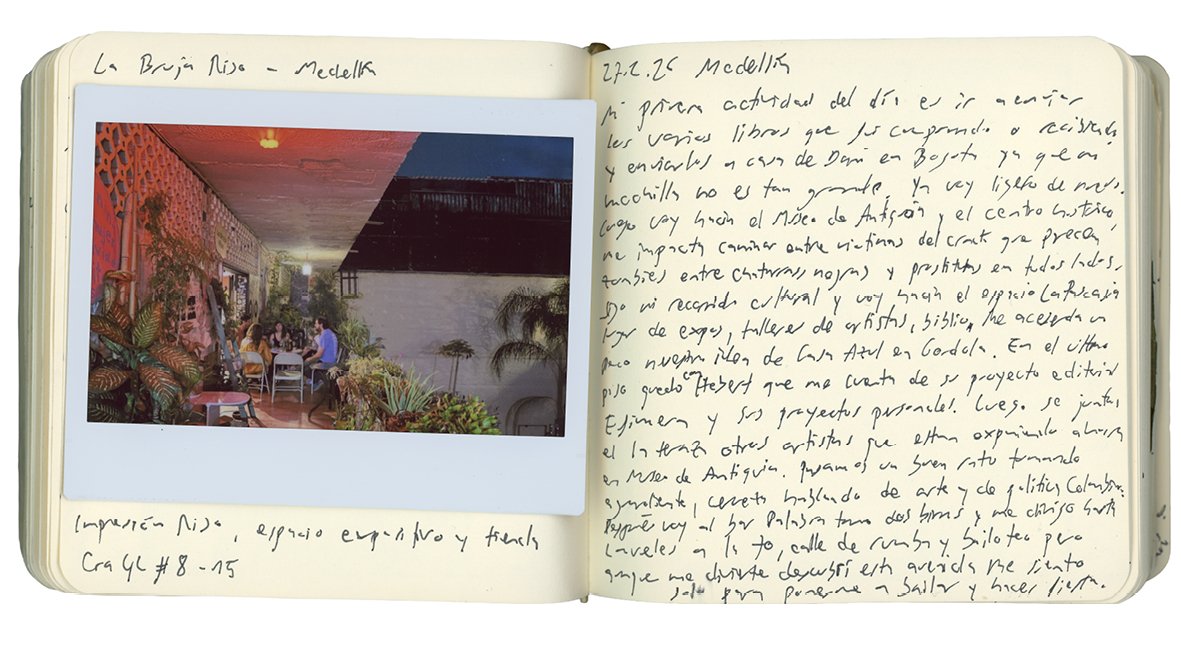 La Bruja Riso - Medellín
Impresión Riso, espacio expositivo y tienda
Cra 42 # 8 - 15
27.2.26 Medellín
Mi primera actividad del día es ir a enviar
los varios libros que fui comprando o recibiendo
y enviarlos a casa de Dani en Bogota ya que mi
mochilla no es tan grande. Ya voy ligero de nuevo.
Luego voy hacia el Museo de Antioquia y el centro historico,
me impacta caminar entre victimas del crack que parecen
zombies entre chatarras negras y prostitutas en todos lados.
Sigo mi recorrido cultural y voy hacia el espacio La Pascasia
lugar de expos, talleres de artistas, biblio, me acuerda un
poco nuestra idea de Casa Azul en Cordoba. En el último
piso quedo con Hebert que me cuenta de su proyecto editorial
Esfimera y sus proyectos personales. Luego se juntan
el la terraza otros artistas que estan exponiendo ahora
en Museo de Antioquia. Pasamos un buen rato tomando
aguardiente, cerveza hablando de arte y de politica Colombiana.
Después voy al bar Palabra tomo dos birras y me dirigo hasta
Laureles a la 70, calle de rumba y bailoteo pero
aunque me divierte descubrir esta avenida me siento
solo para ponerme a bailar y hacer fiesta.